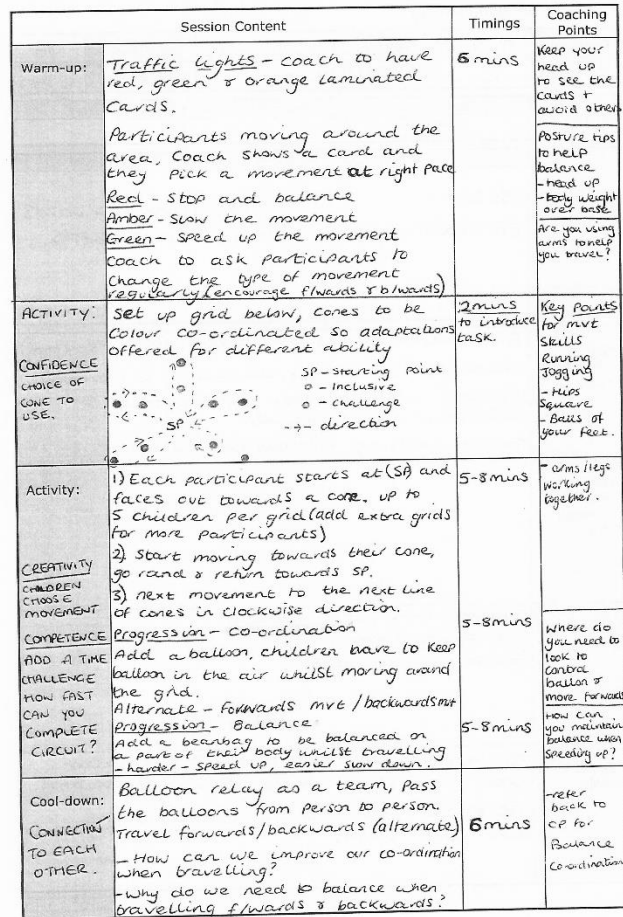 Session Content
Timings
Coaching
Points
Warm-up:
Traffic lights - coach to have
red, green & orange laminated
cards.
Participants moving around the
area, coach shows a card and
they pick a movement at right pace
Red - Stop and balance
Amber - slow the movement
Green - Speed up the movement
coach to ask participants to
change the type of movement
regularly (encourage f/wards & b/wards)
6 mins
Keep your
head up
to see the
cards +
avoid others
Posture tips
to help
balance
- head up
- body weight
over base
Are you using
arms to help
you travel?
ACTIVITY:
CONFIDENCE
CHOICE OF
CONE TO
USE.
Set up grid below, cones to be
colour co-ordinated so adaptations
offered for different ability
SP - starting point
- inclusive
- challenge
- direction
SP
2 mins
to introduce
task.
Key Points
for mvt
skills
Running
Jogging
- Hips
Square
- Balls of
your feet.
Activity:
CREATIVITY
CHILDREN
CHOOSE
MOVEMENT
COMPETENCE
ADD A TIME
CHALLENGE
HOW FAST
CAN YOU
COMPLETE
CIRCUIT?
1) Each participant starts at (SP) and
faces out towards a cone, up to
5 children per grid (add extra grids
for more participants)
2) Start moving towards their cone,
go round & return towards SP.
3) next movement to the next line
of cones in clockwise direction.
Progression - co-ordination
Add a balloon, children have to keep
balloon in the air whilst moving around
the grid.
Alternate - forwards mvt / backwards mvt
Progression - Balance
Add a beanbag to be balanced on
a part of their body whilst travelling
- harder - speed up, easier slow down.
5-8 mins
5-8 mins
5-8 mins
- arms/legs
working
together.
Where do
you need to
look to
control
balloon &
move forwards
How can
you maintain
balance when
speeding up?
Cool-down:
CONNECTION
TO EACH
OTHER.
Balloon relay as a team, pass
the balloons from person to person.
Travel forwards/backwards (alternate)
- How can we improve our co-ordination
when travelling?
- Why do we need to balance when
travelling f/wards & backwards?
6 mins
- refer
back to
CP for
Balance
Co-ordination